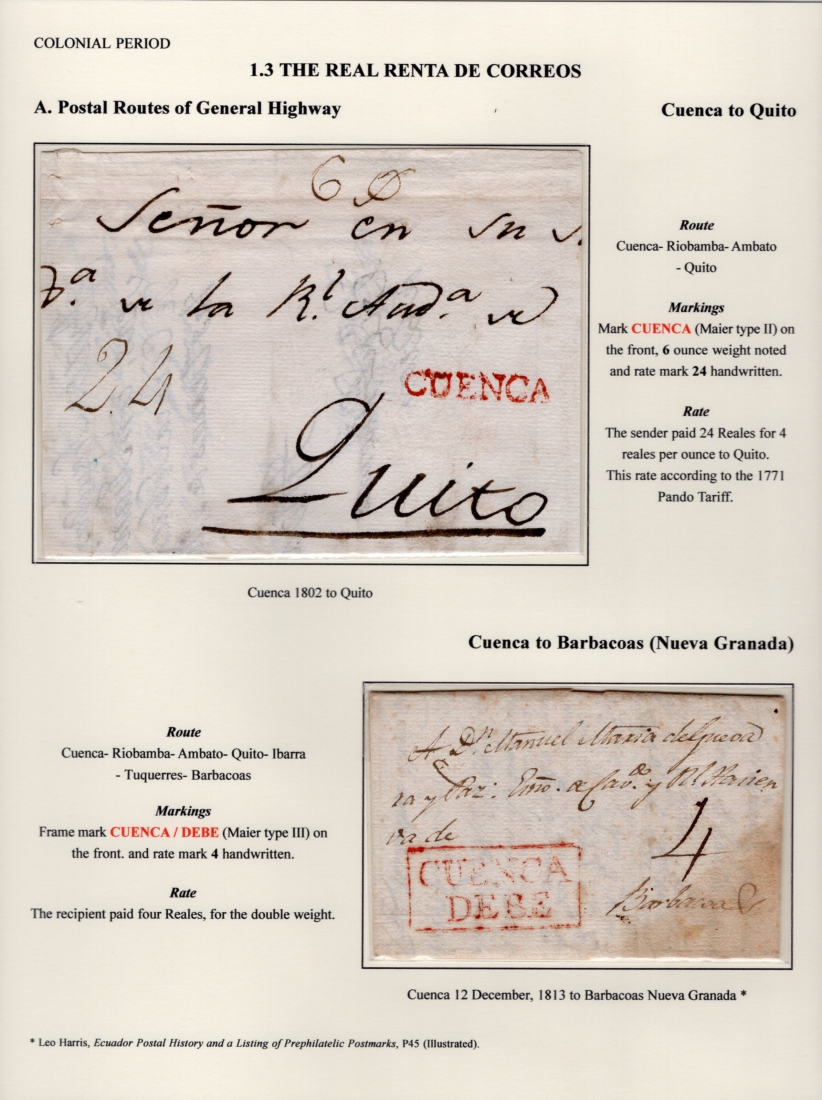 COLONIAL PERIOD
1.3 THE REAL RENTA DE CORREOS
A. Postal Routes of General Highway
Cuenca to Quito
6 D
Señor en su S.
de la Rl. Auda. de
24
CUENCA
Quito
Route
Cuenca- Riobamba- Ambato
- Quito
Markings
Mark CUENCA (Maier type II) on
the front, 6 ounce weight noted
and rate mark 24 handwritten.
Rate
The sender paid 24 Reales for 4
reales per ounce to Quito.
This rate according to the 1771
Pando Tariff.
Cuenca 1802 to Quito
Cuenca to Barbacoas (Nueva Granada)
Route
Cuenca- Riobamba- Ambato- Quito- Ibarra
- Tuquerres- Barbacoas
Markings
Frame mark CUENCA / DEBE (Maier type III) on
the front. and rate mark 4 handwritten.
Rate
The recipient paid four Reales, for the double weight.
A Dn. Manuel Maria
y Paz. y Rl.
4
CUENCA
DEBE
Barbacoas
Cuenca 12 December, 1813 to Barbacoas Nueva Granada *
* Leo Harris, Ecuador Postal History and a Listing of Prephilatelic Postmarks, P45 (Illustrated).